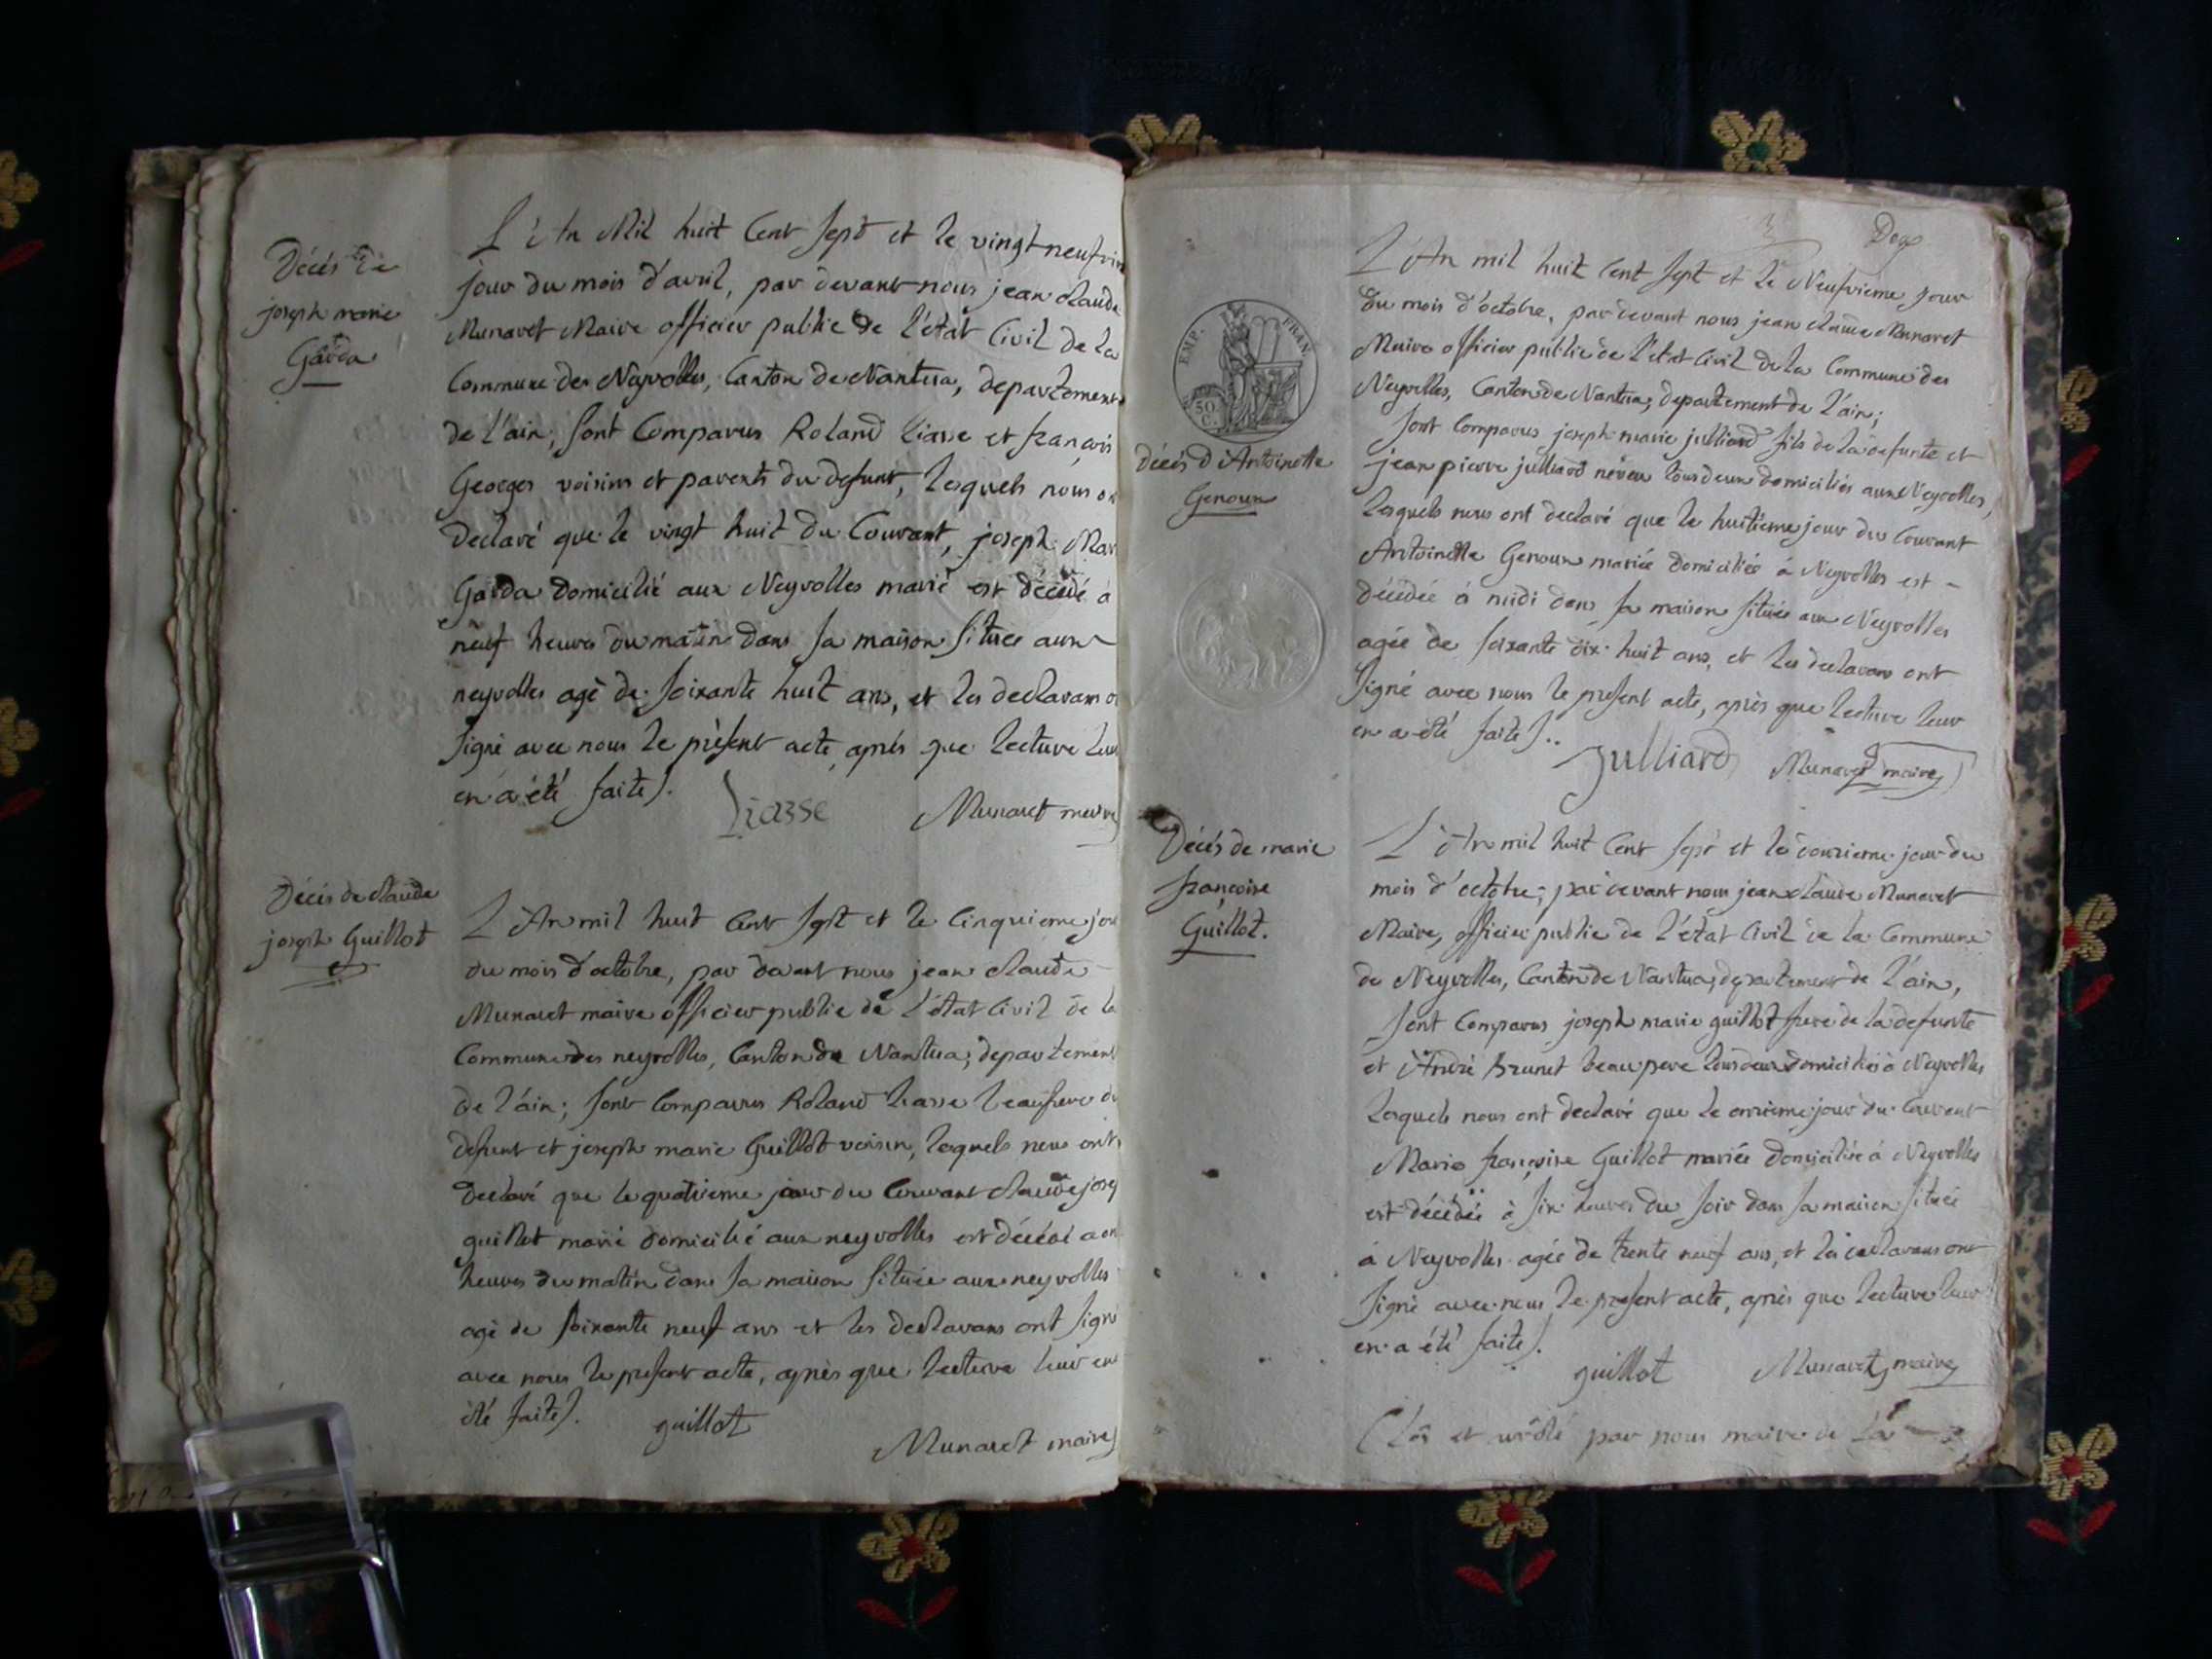 Décés de
joseph marie
Garda
L'An Mil huit Cent Sept et le vingt neufvie
jour du mois d'avril, par devant nous jean claude
Munaret Maire officier public de l'état Civil de la
Commune des Neyrolles, Canton de Nantua, departement
de l'ain; sont Comparus Roland Liasse et françois
Georges voisins et parents du defunt, lesquels nous on
declaré que le vingt huit du Courant, joseph Mar
Garda domicilié aux Neyrolles marié est décédé à
neuf heures du matin dans sa maison située aux
neyrolles agé de soixante huit ans, et les declarans o
signé avec nous le présent acte, après que lecture leur
en a été faite).
Liasse
Munaret maire
Décés de claude
joseph Guillot
L'An mil huit Cent Sept et le Cinquieme jou
du mois d'octobre, par devant nous jean claude
Munaret maire officier public de l'état Civil de la
Commune des neyrolles, Canton de Nantua, departement
de l'ain; sont Comparus Roland Liasse beaufrere du
defunt et joseph marie Guillot voisin, lesquels nous ont
declaré que le quatrieme jour du Courant claude josep
guillot marié domicilié aux neyrolles est décédé a on
heures du matin dans sa maison située aux neyrolles
agé de soixante neuf ans et les declarans ont signé
avec nous le present acte, après que lecture leur en
été faite).
guillot
Munaret maire
EMP. FRAN.
50
C.
décés d'Antoinette
Genoux
L'An mil huit Cent Sept et le Neufvieme jour
du mois d'octobre, par devant nous jean claude Munaret
Maire officier public de l'etat Civil de la Commune des
Neyrolles, Canton de Nantua, departement de l'ain;
sont Comparus joseph marie julliard fils de la defunte et
jean pierre julliard neveu tous deux domiciliés aux Neyrolles,
lesquels nous ont declaré que le huitieme jour du Courant
Antoinette Genoux mariée domiciliée à Neyrolles est
décédée à midi dans sa maison située aux Neyrolles
agée de soixante dix huit ans, et les declarans ont
signé avec nous le present acte, après que lecture leur
en a été faite)..
Julliard
Munaret maire
Décés de marie
françoise
Guillot.
L'An mil huit Cent Sept et le douzieme jour du
mois d'octobre; par devant nous jean claude Munaret
Maire, officier public de l'état Civil de la Commune
de Neyrolles, Canton de Nantua, departement de l'ain,
sont Comparus joseph marie guillot frere de la defunte
et André brunet beau pere tous deux domiciliés à Neyrolles
lesquels nous ont declaré que le onzieme jour du Courant
Marie françoise Guillot mariée domiciliée à Neyrolles
est décédée à six heures du soir dans sa maison située
à Neyrolles agée de trente neuf ans, et les declarans ont
signé avec nous le present acte, après que lecture leur
en a été faite).
guillot
Munaret maire
Clos et arrêté par nous maire de la